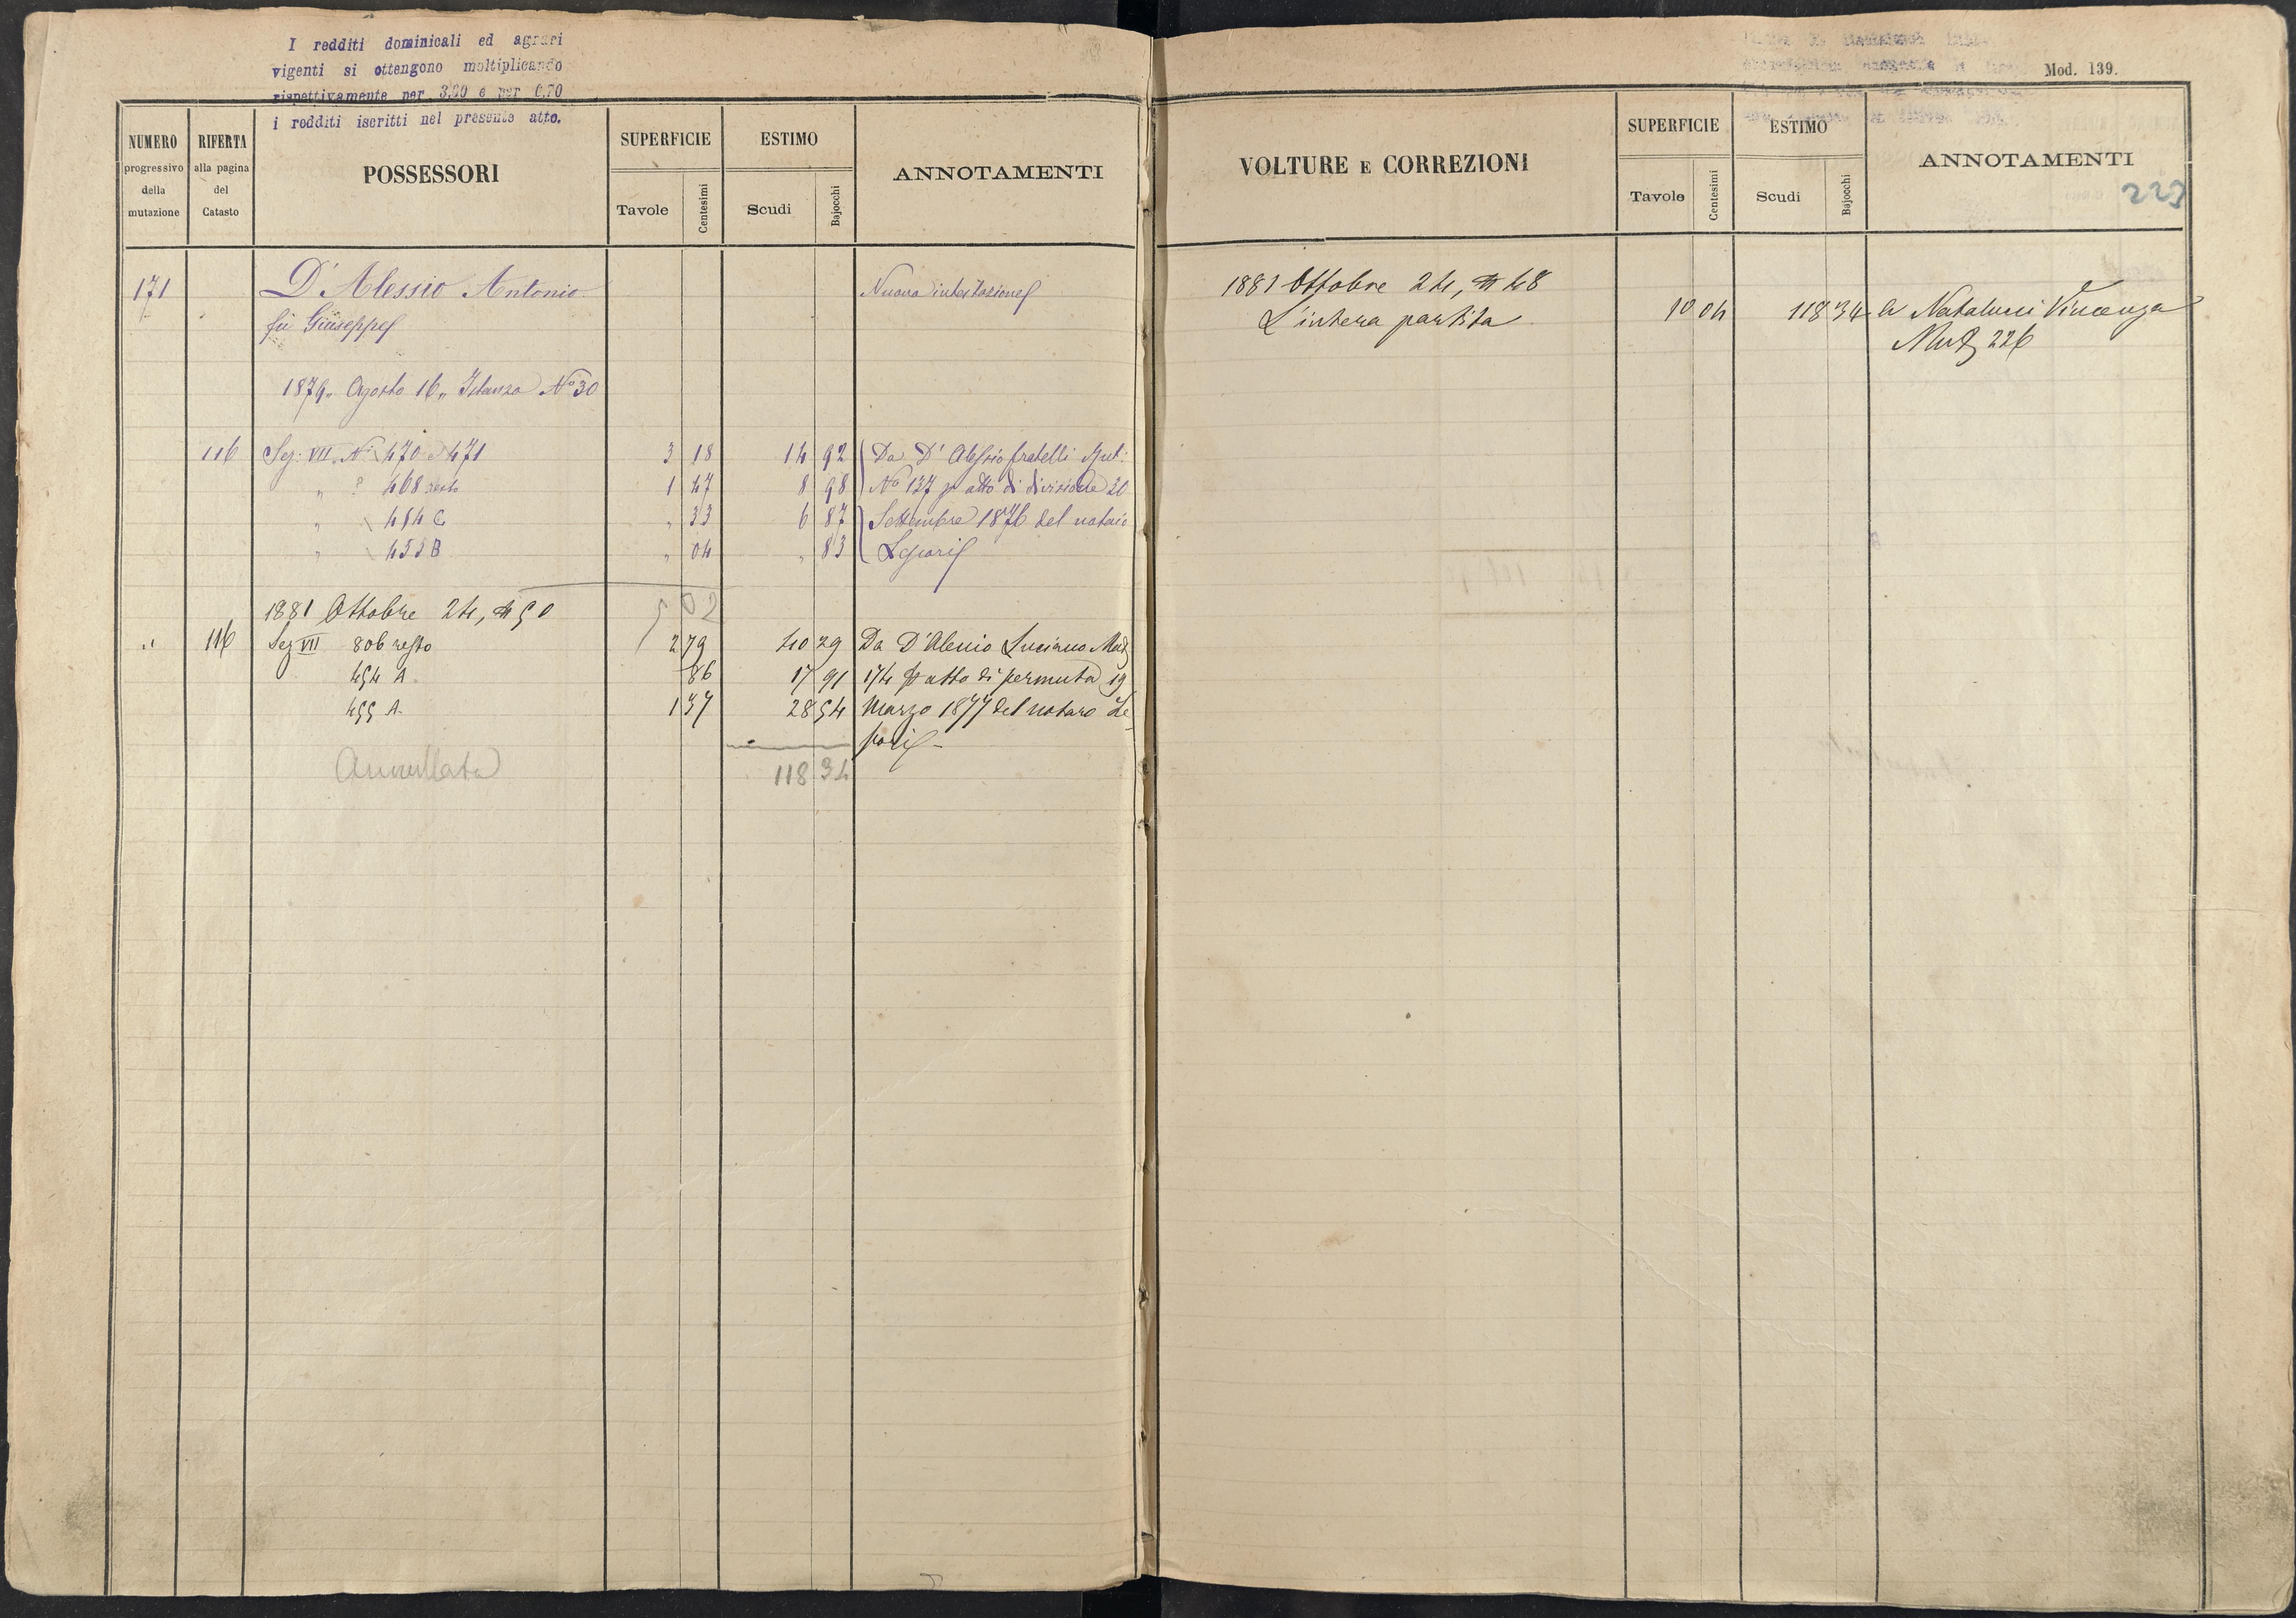 I redditi dominicali ed agrari
vigenti si ottengono moltiplicando
rispettivamente per 3,20 e per 6,70
i redditi iscritti nel presente atto.
NUMERO progressivo della mutazione
RIFERTA alla pagina del Catasto
POSSESSORI
SUPERFICIE
Tavole Centesimi
ESTIMO
Scudi Bajocchi
ANNOTAMENTI
171 D'Alessio Antonio Nuova intestazione
fu Giuseppe
1879 „ Agosto 16 „ Istanza No 30
116 Sez: VII Ni 470 e 471 3 18 14 92 Da D'Alessio fratelli Mut:
„ 468 resto 1 47 8 98 No 137 p atto di divisione 20
„ 454 C „ 33 6 87 Settembre 1876 del notaio
„ 455 B „ 04 „ 83 Lepori
5 02
1881 Ottobre 24, N 50
" 116 Sez VII 806 resto 2 79 40 29 Da D'Alessio Luciano Mut
454 A 86 17 91 174 p atto di permuta 19
455 A 1 37 28 54 Marzo 1877 del notaro Le
pori
Annullata 118 34
Mod. 139.
VOLTURE E CORREZIONI
SUPERFICIE
Tavole Centesimi
ESTIMO
Scudi Bajocchi
ANNOTAMENTI
223
1881 Ottobre 24, N 48
L'intera partita 10 04 118 34 a Natalucci Vincenza
Mut 226